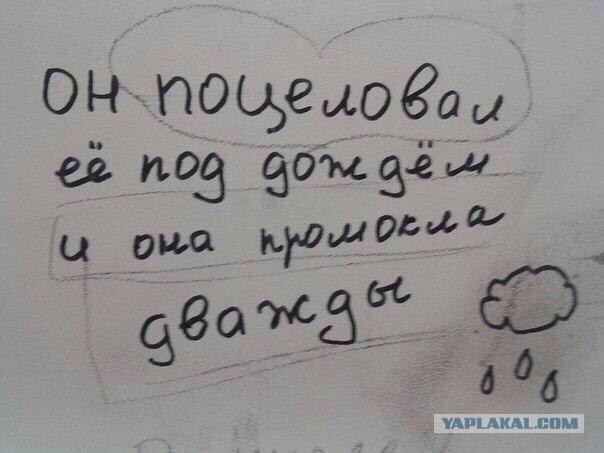 он поцеловал
её под дождём
и она промокла
дважды
YAPLAKAL.COM